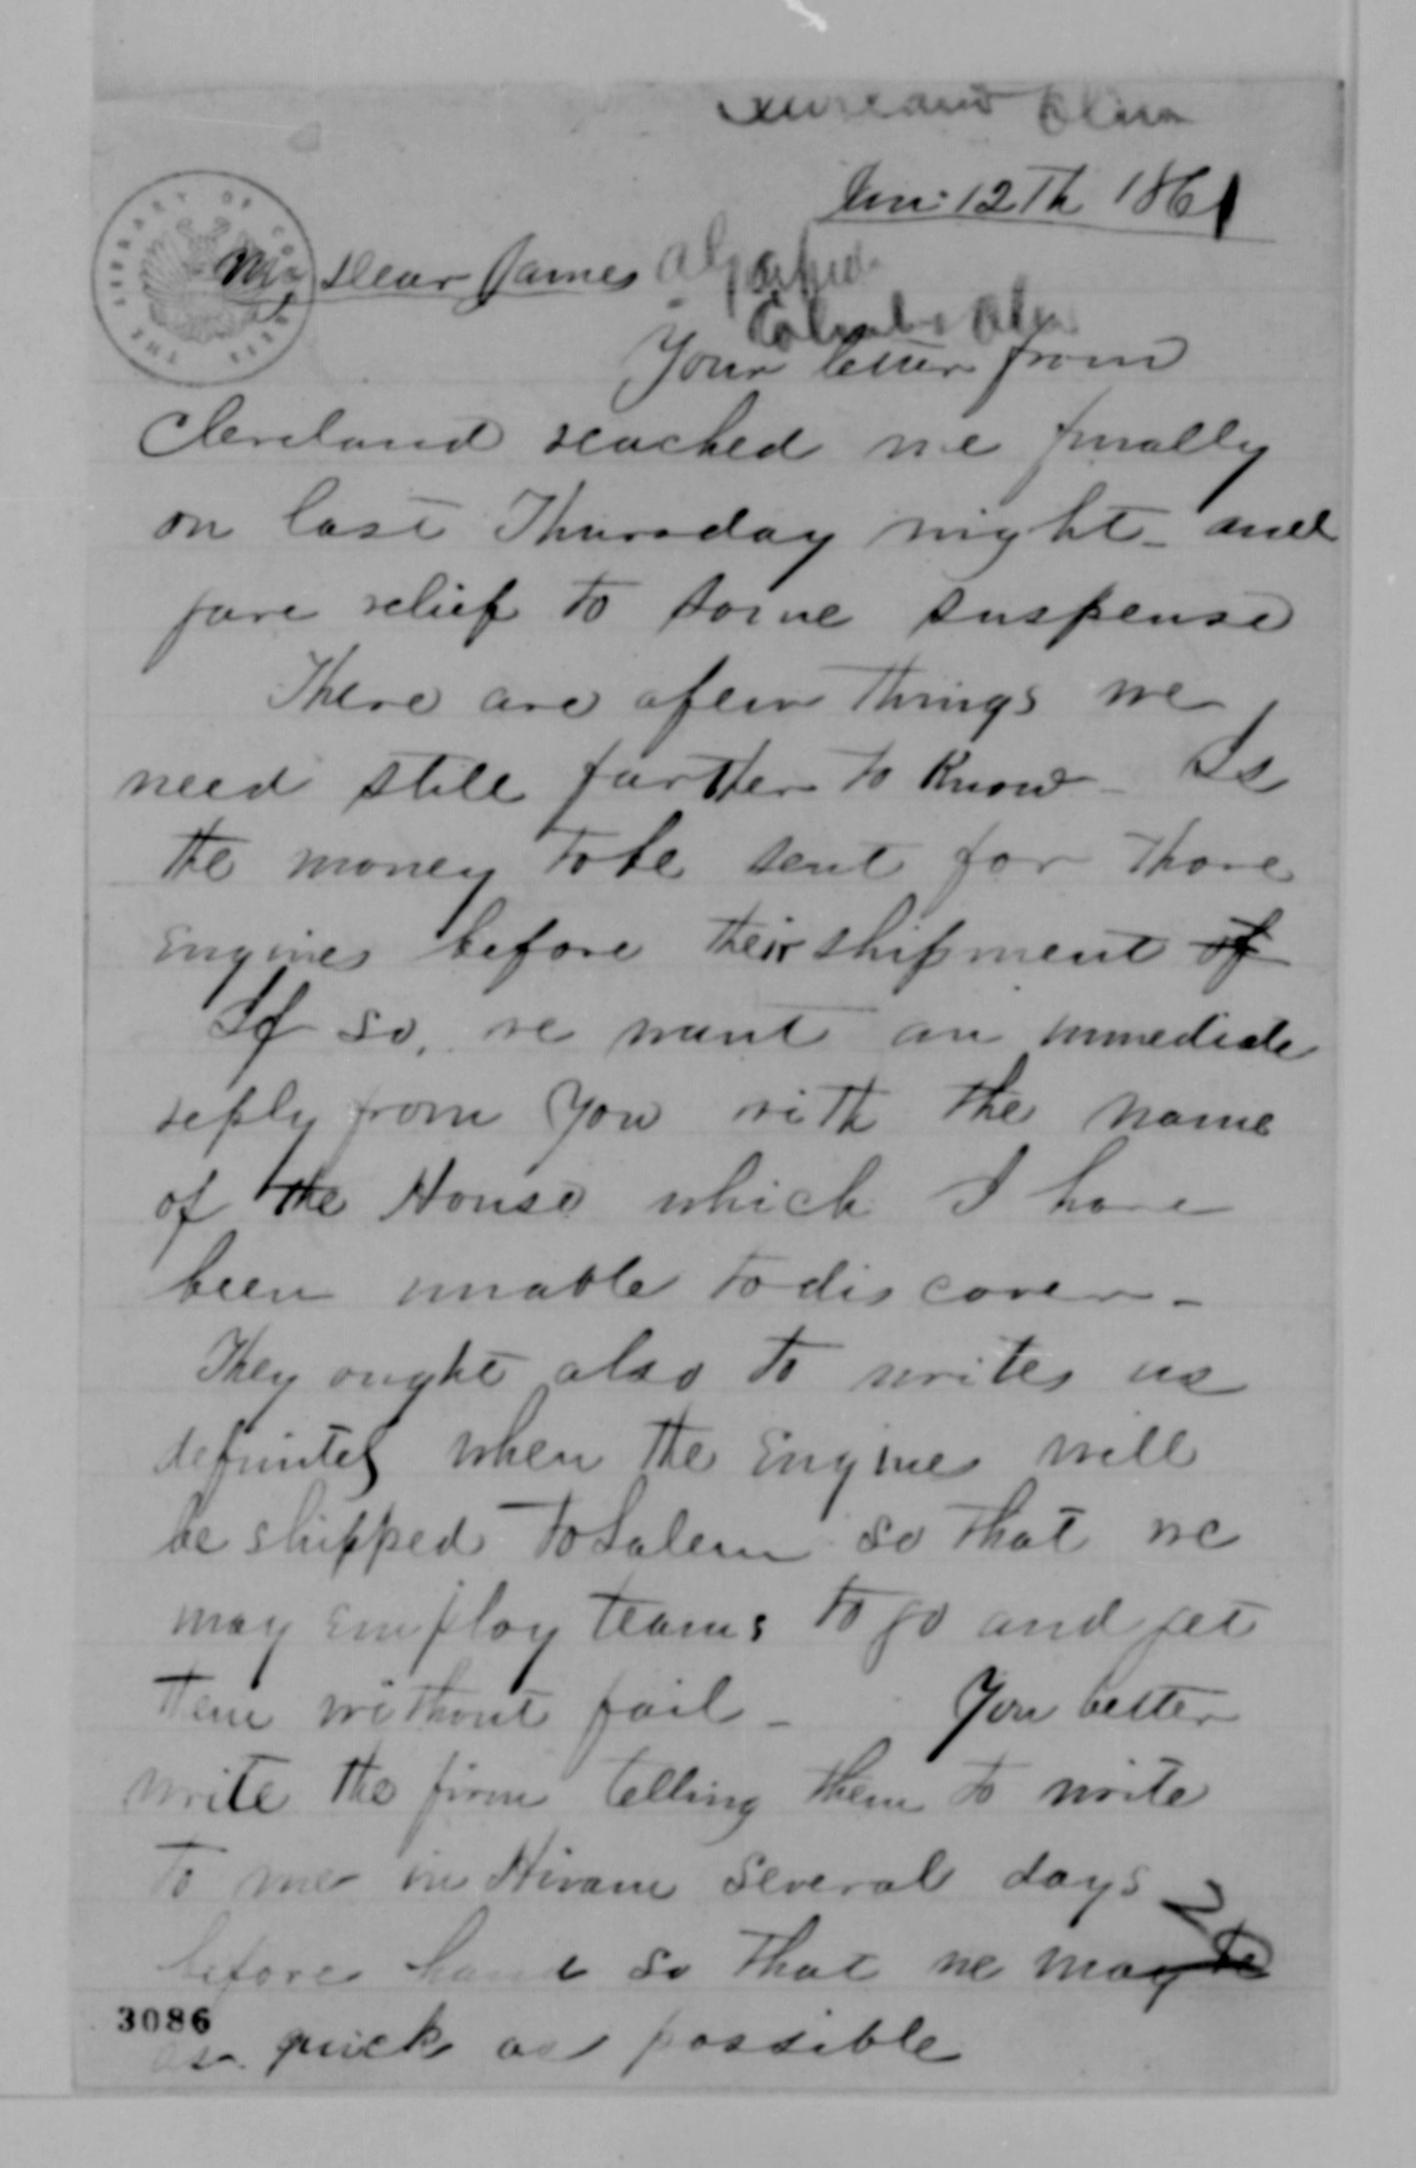 Jan: 12Th 1861
My Dear James A Garfield
Columbus Ohio
Your letter from
Cleveland reached me finally
on last Thursday night - and
gave relief to some suspense
There are afew things we
need still further to know - Is
the money tobe sent for those
Engines before their shipment of
If so, we want an immediate
reply from you with the name
of the House which I have
been unable to discover -
They ought also to write us
definitely when the Engines will
be shipped to Salem so that we
may Employ teams to go and get
them without fail - You better
write the firm telling them to write
to me in Hiram several days
before hand so that we may be
as quick as possible
THE LIBRARY OF CONGRESS
3086